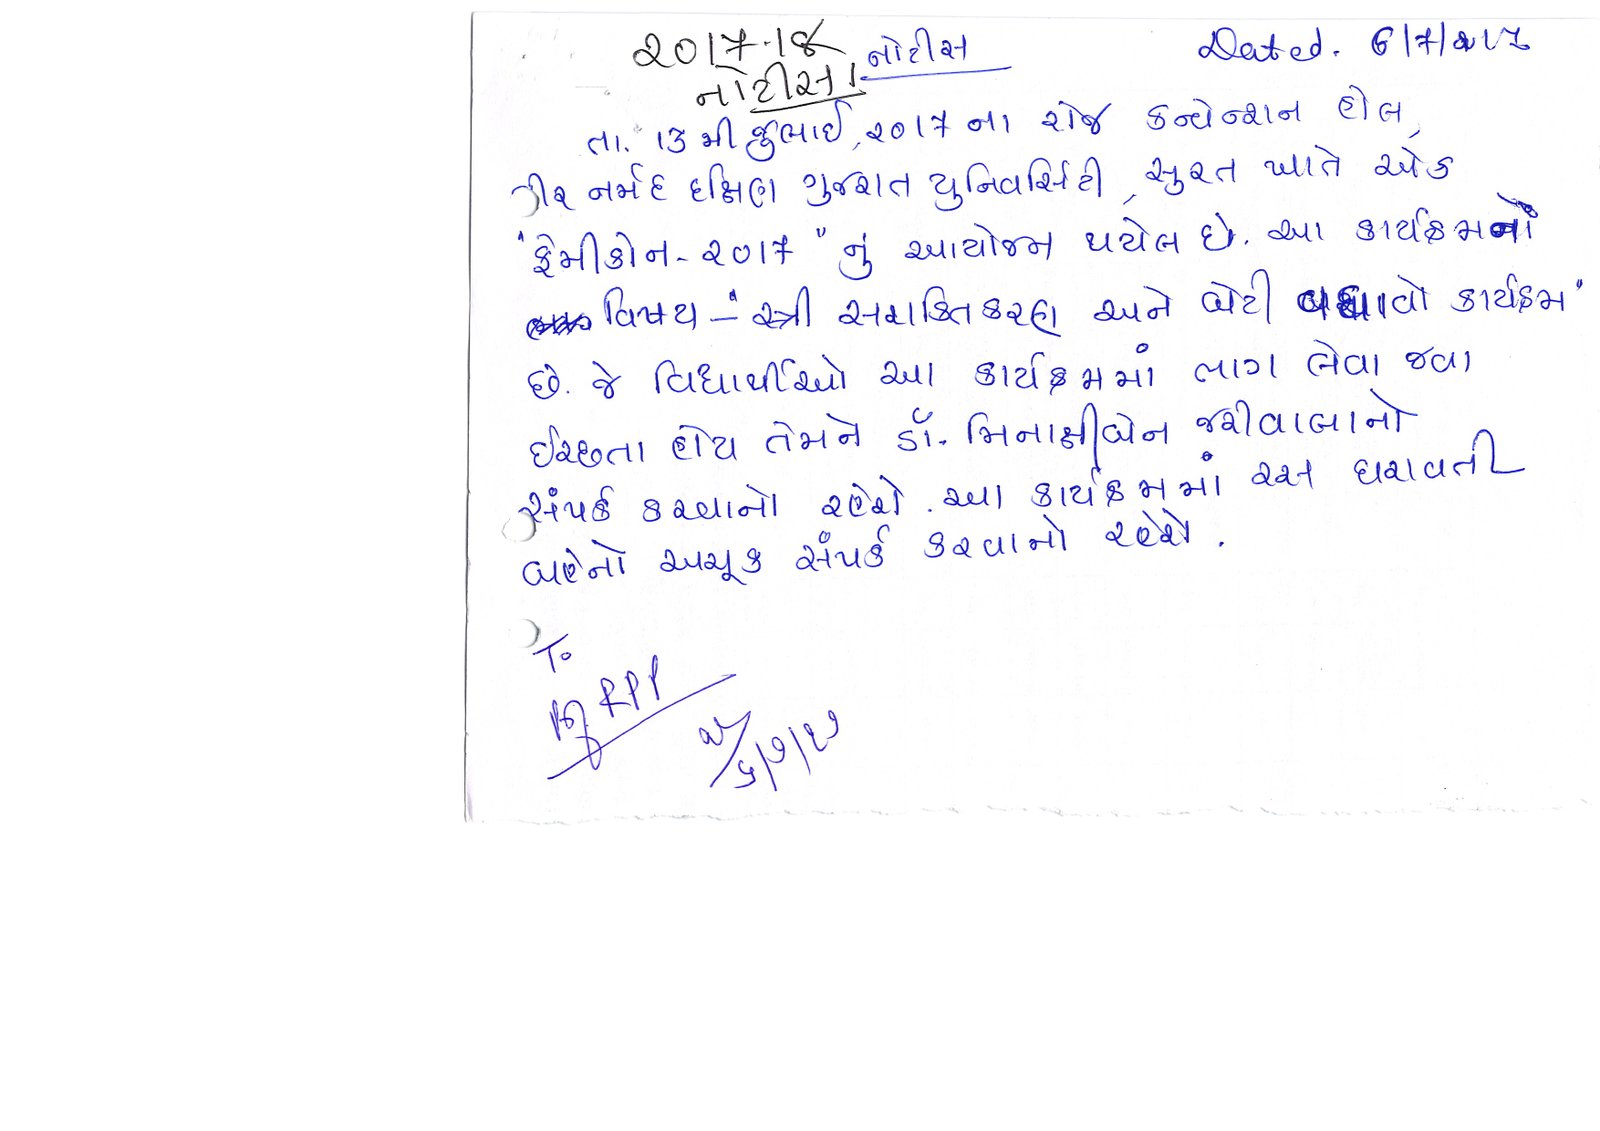 ૨૦૧૭-૧૮ નોટીસ Dated. 6/7/2017
નોટીસ
તા. ૧૩ મી જુલાઈ, ૨૦૧૭ ના રોજ કન્વેન્શન હોલ,
વીર નર્મદ દક્ષિણ ગુજરાત યુનિવર્સિટી, સુરત ખાતે એક
"ફેમીકોન-૨૦૧૭" નું આયોજન થયેલ છે. આ કાર્યક્રમનો
વિષય - "સ્ત્રી સશક્તિકરણ અને બેટી બચાવો કાર્યક્રમ"
છે. જે વિદ્યાર્થીઓ આ કાર્યક્રમમાં ભાગ લેવા જવા
ઈચ્છતા હોય તેમને ડૉ. મિનાક્ષીબેન જરીવાલાનો
સંપર્ક કરવાનો રહેશે. આ કાર્યક્રમમાં રસ ધરાવતી
બહેનો અચૂક સંપર્ક કરવાનો રહેશે.
To
RPP
૬/૭/૧૭